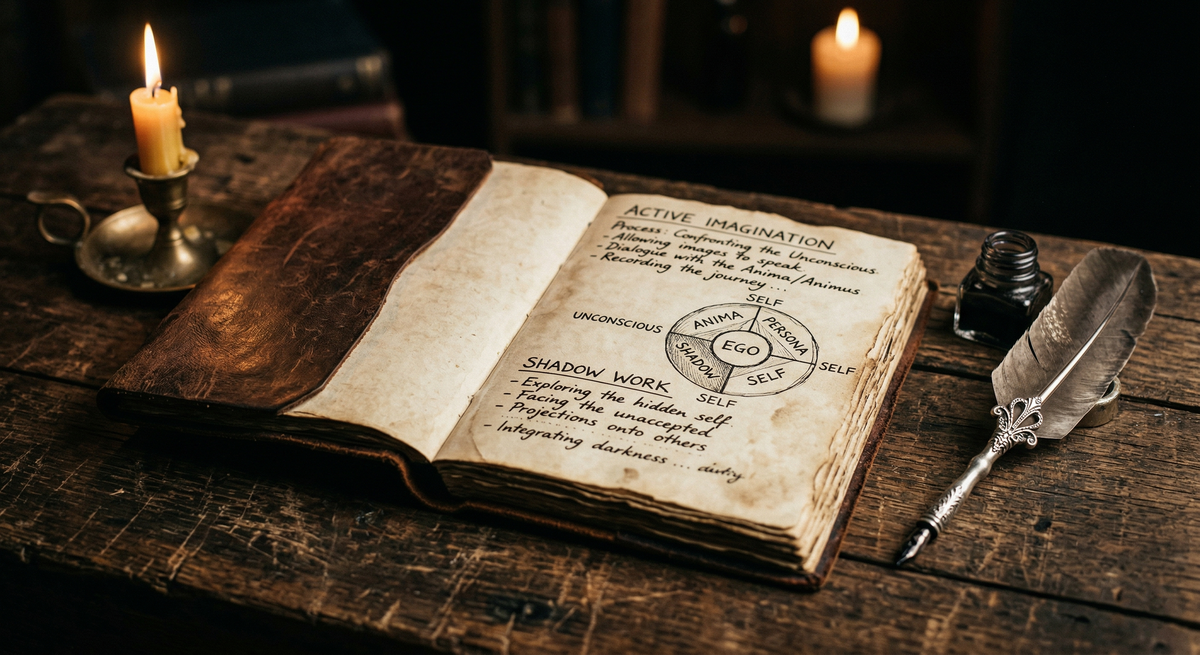 ACTIVE IMAGINATION
Process: Confronting the Unconscious.
- Allowing images to speak
- Dialogue with the Anima/Animus
- Recording the journey...
SELF
UNCONSCIOUS
ANIMA
PERSONA
EGO
SHADOW
SELF
SELF
SELF
SHADOW WORK
- Exploring the hidden self.
- Facing the unaccepted
- Projections onto others
- Integrating darkness ... duity